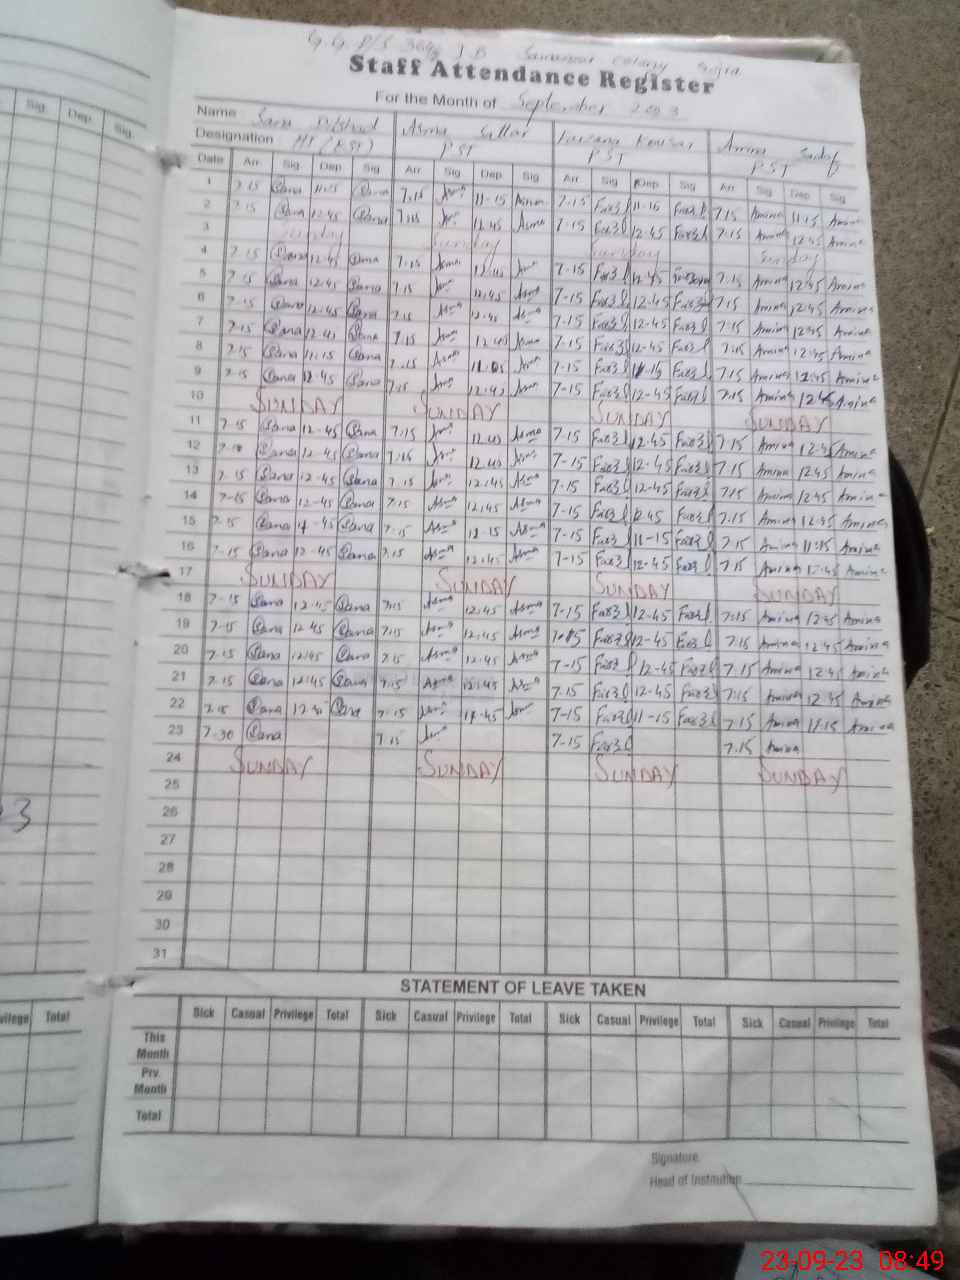 Sig. Dep. Sig.
G.G P/S J.B Colony
Staff Attendance Register
For the Month of September 2023
Name Sana Dilshad Asma Sattar Farzana Kausar Amina
Designation HT (PST) PST PST PST
Date Arr. Sig. Dep. Sig Arr Sig Dep Sig Arr. Sig Dep Sig Arr Sig Dep Sig
1 7.15 Sana 11.15 Sana 7.15 Asma 11-15 Asma 7-15 Far3l 11-15 Far3l 7.15 Amina 11.15 Amina
2 7.15 Sana 12.45 Sana 7.15 12.45 Asma 7-15 Far3l 12-45 Far3l 7.15 Amina 12.45 Amina
3 Sunday Sunday Sunday Sunday
4 7.15 Sana 12.45 Sana 7.15 7-15 Far3l 7.15 Amina 12.45 Amina
5 7.15 Sana 12.45 Sana 7.15 12.45 7-15 Far3l 12-45 7.15 Amina 12.45 Amina
6 7.15 Sana 12.45 Sana 7.15 Asma 12.45 Asma 7-15 Far3l 12-45 Far3l 7.15 Amina 12.45 Amina
7 7.15 Sana 12.45 Sana 7.15 12.45 7-15 Far3l 12-45 Far3l 7.15 Amina 12.45 Amina
8 7.15 Sana 11.15 Sana 7.15 Asma 7-15 Far3l 11.15 Far3l 7.15 Amina 12.45 Amina
9 7.15 Sana 12.45 Sana 7.15 12.45 7-15 Far3l 12-45 Far3l 7.15 Amina 12.45 Amina
10 SUNDAY SUNDAY SUNDAY SUNDAY
11 7-15 Sana 12-45 Sana 7.15 12.45 Asma 7-15 Far3l 12.45 Far3l 7.15 Amina 12.45 Amina
12 Sana 12-45 Sana 7.15 12.45 Asma 7-15 Far3l 12-45 Far3l 7.15 Amina 12.45 Amina
13 7.15 Sana 12-45 Sana 7.15 12.45 Asma 7-15 Far3l 12-45 Far3l 7.15 Amina 12.45 Amina
14 7-15 Sana 12-45 Sana 7.15 Asma 12.45 Asma 7-15 Far3l 12.45 Far3l 7.15 Amina 12.45 Amina
15 7.15 Sana Sana 7.15 Asma 11-15 Asma 7-15 Far3l 11-15 Far3l 7.15 Amina 11.15 Amina
16 7-15 Sana 12-45 Sana 7.15 Asma 12.45 Asma 7-15 Far3l 12-45 Far3l 7.15 Amina 12.45 Amina
17 SUNDAY SUNDAY SUNDAY SUNDAY
18 7-15 Sana 12.45 Sana 7.15 Asma 12.45 Asma 7-15 Far3l 12-45 Far3l 7.15 Amina 12.45 Amina
19 7-15 Sana 12.45 Sana 7.15 Asma 12.45 Asma Far3l 12-45 Far3l 7.15 Amina 12.45 Amina
20 7.15 Sana 12.45 Sana 7.15 Asma 12.45 Asma 7-15 Far3l 12-45 Far3l 7.15 Amina 12.45 Amina
21 7.15 Sana 12.45 Sana 7.15 Asma 12.45 Asma 7.15 Far3l 12-45 Far3l 7.15 Amina 12.45 Amina
22 7.15 Sana Sana 7.15 7-15 Far3l 11-15 Far3l 7.15 Amina 11.15 Amina
23 7-30 Sana 7.15 7-15 Far3l 7.15 Amina
24 SUNDAY SUNDAY SUNDAY SUNDAY
25
26
27
28
29
30
31
STATEMENT OF LEAVE TAKEN
vilege Total Sick Casual Privilege Total Sick Casual Privilege Total Sick Casual Privilege Total Sick Casual Privilege Total
This
Month
Prv.
Month
Total
Signature
Head of Institution
23-09-23 08:49